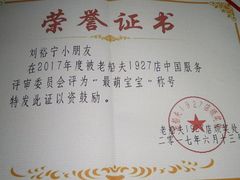 荣誉证书
刘裕宁小朋友
在2017年度被老船夫1927店中国服务
评审委员会评为“最萌宝宝”称号
特发此证以资鼓励。
老船夫1927店颁奖处
二〇一七年六月十三